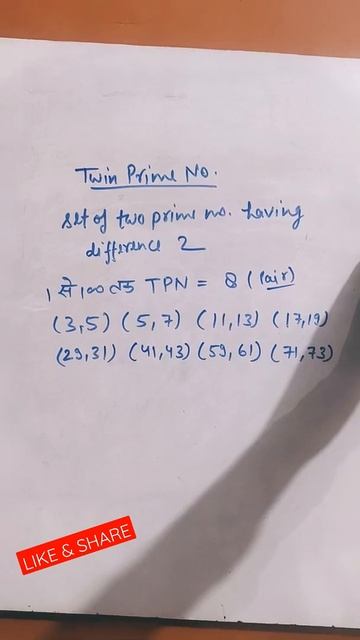 Twin Prime No.
set of two prime no. having
difference 2
1 से 100 तक TPN = 8 (Pair)
(3,5) (5,7) (11,13) (17,19)
(29,31) (41,43) (59,61) (71,73)
LIKE & SHARE